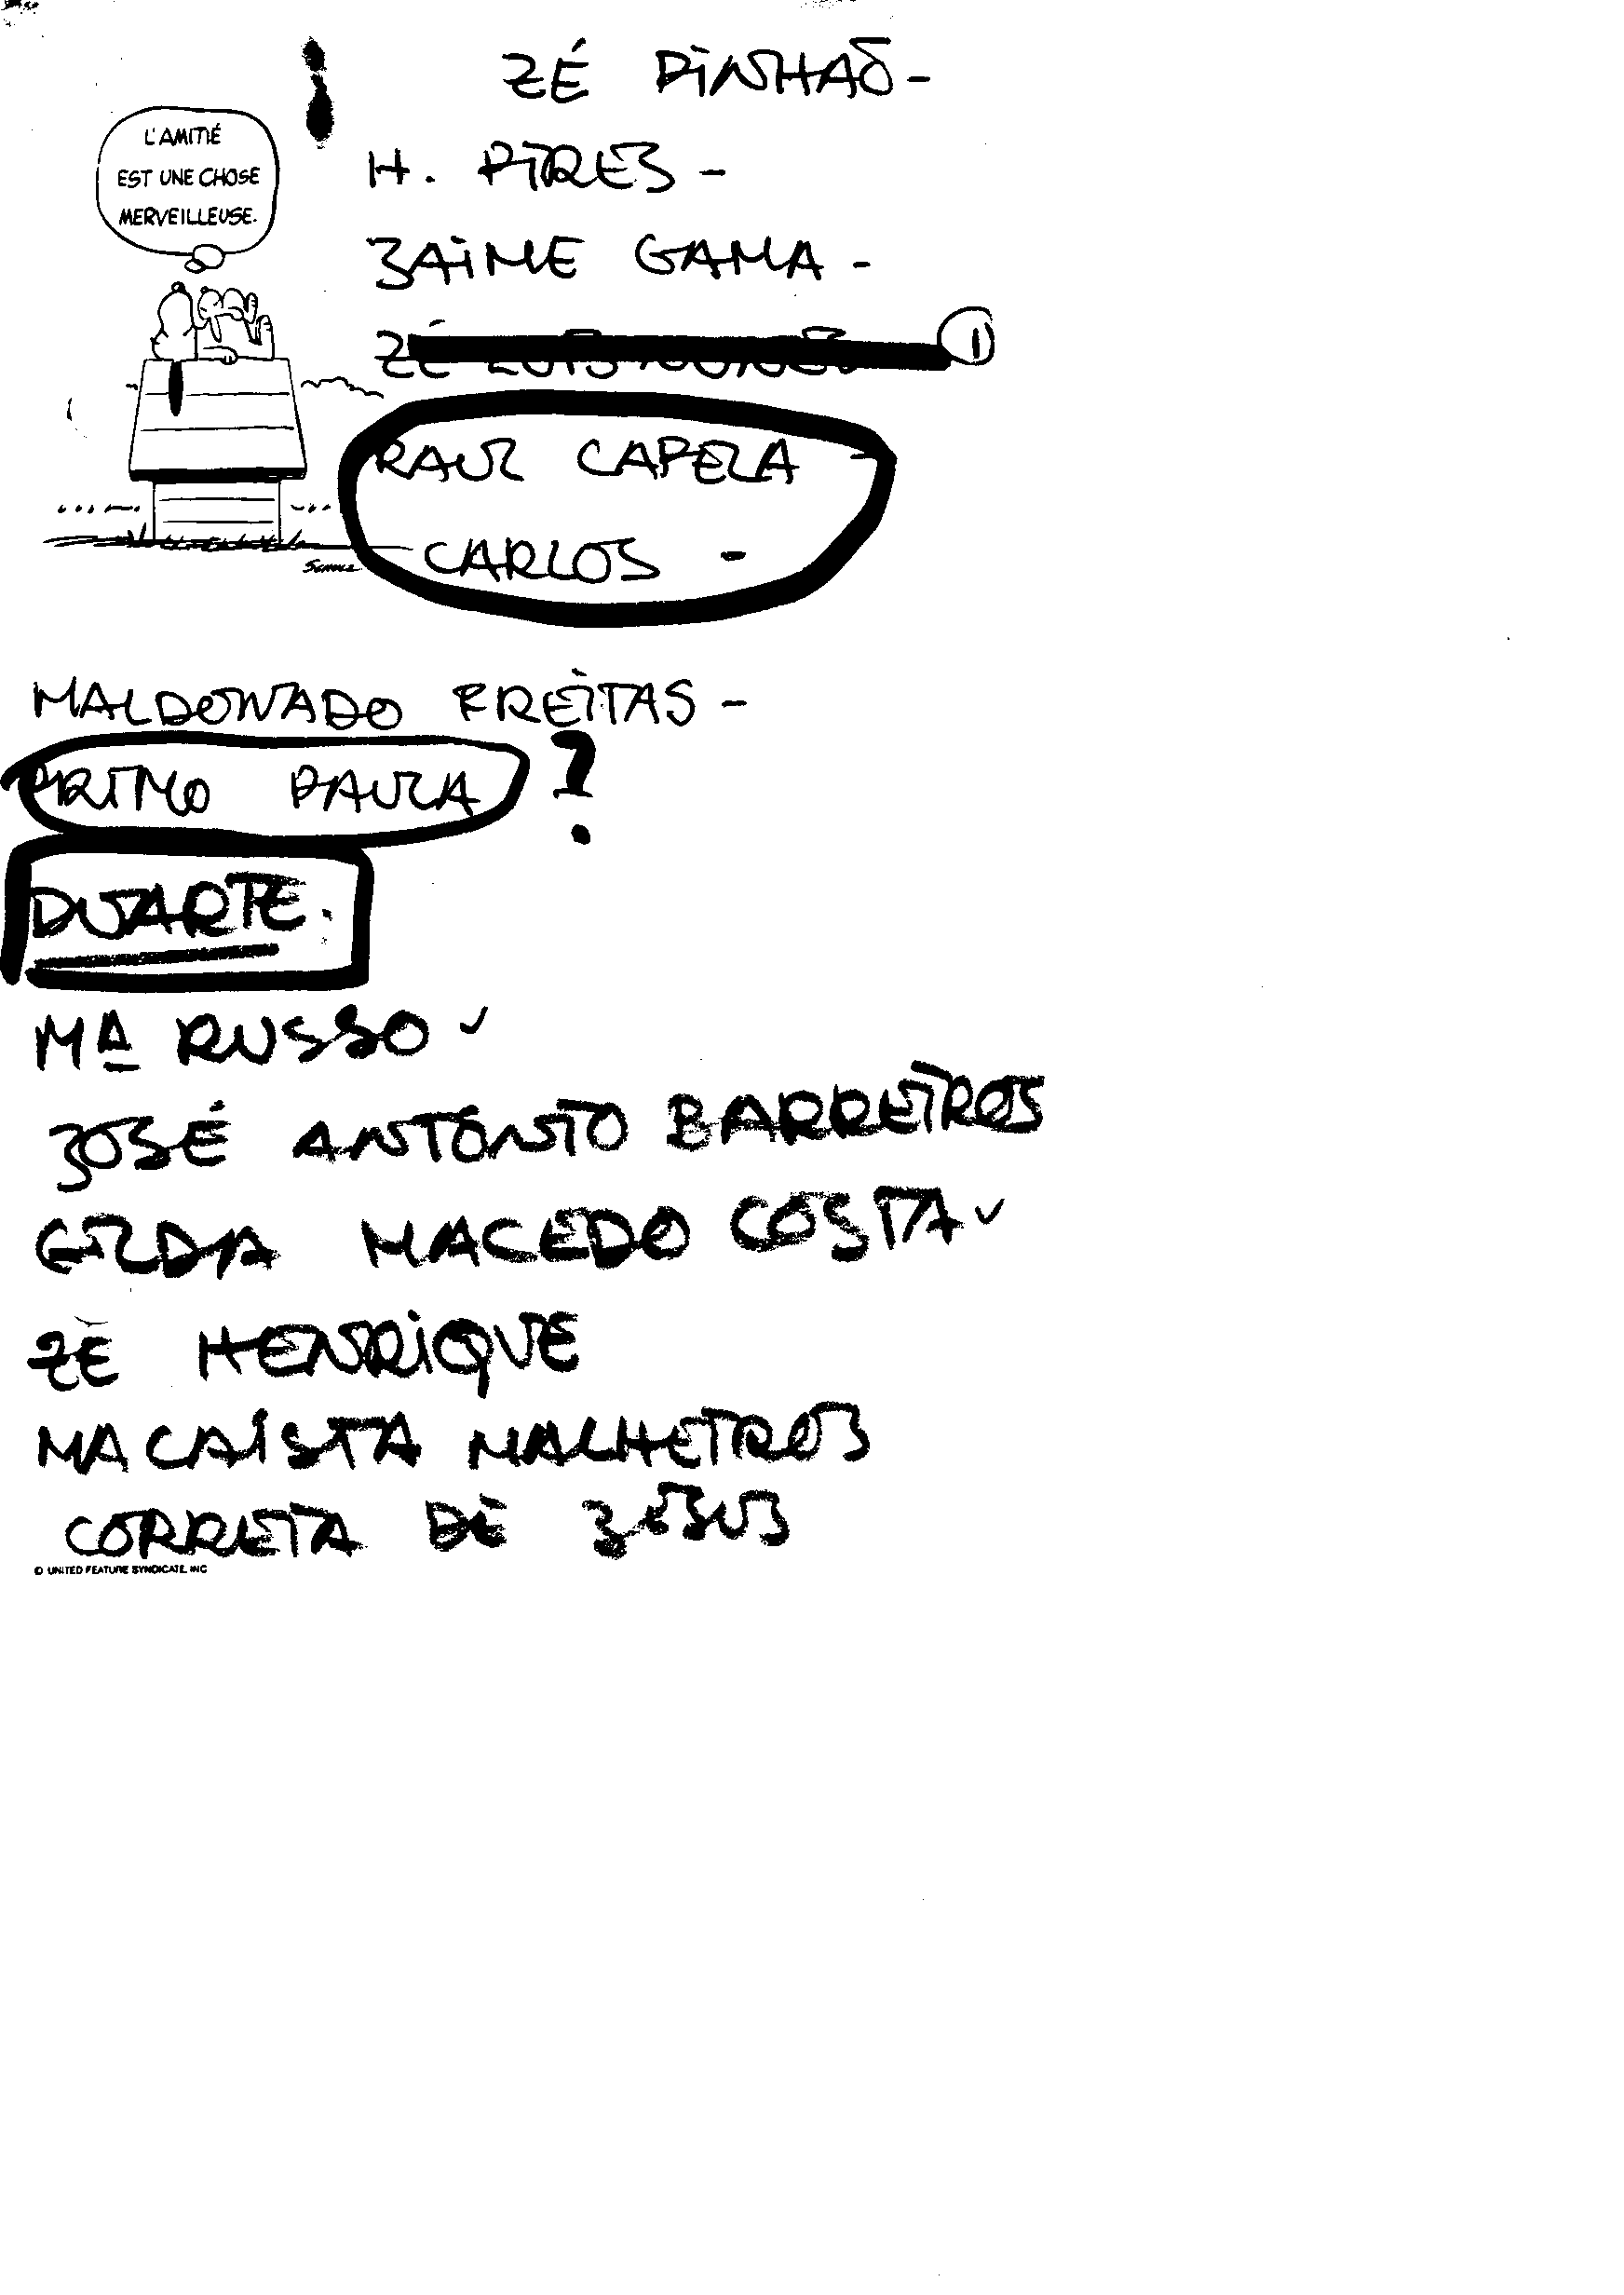 ZÉ PINHÃO -
L'AMITIÉ
EST UNE CHOSE
MERVEILLEUSE.
H. PIRES -
JAIME GAMA -
ZÉ LUIS
RAUL CAPELA -
CARLOS -
SCHULZ
MALDONADO FREITAS -
PRIMO PAULA ?
DUARTE.
Mª RUSSO ✓
JOSÉ ANTÓNIO BARREIROS
GILDA MACEDO COSTA ✓
ZÉ HENRIQUE
MACAÍSTA MALHEIROS
CORREIA DE JESUS
© UNITED FEATURE SYNDICATE, INC